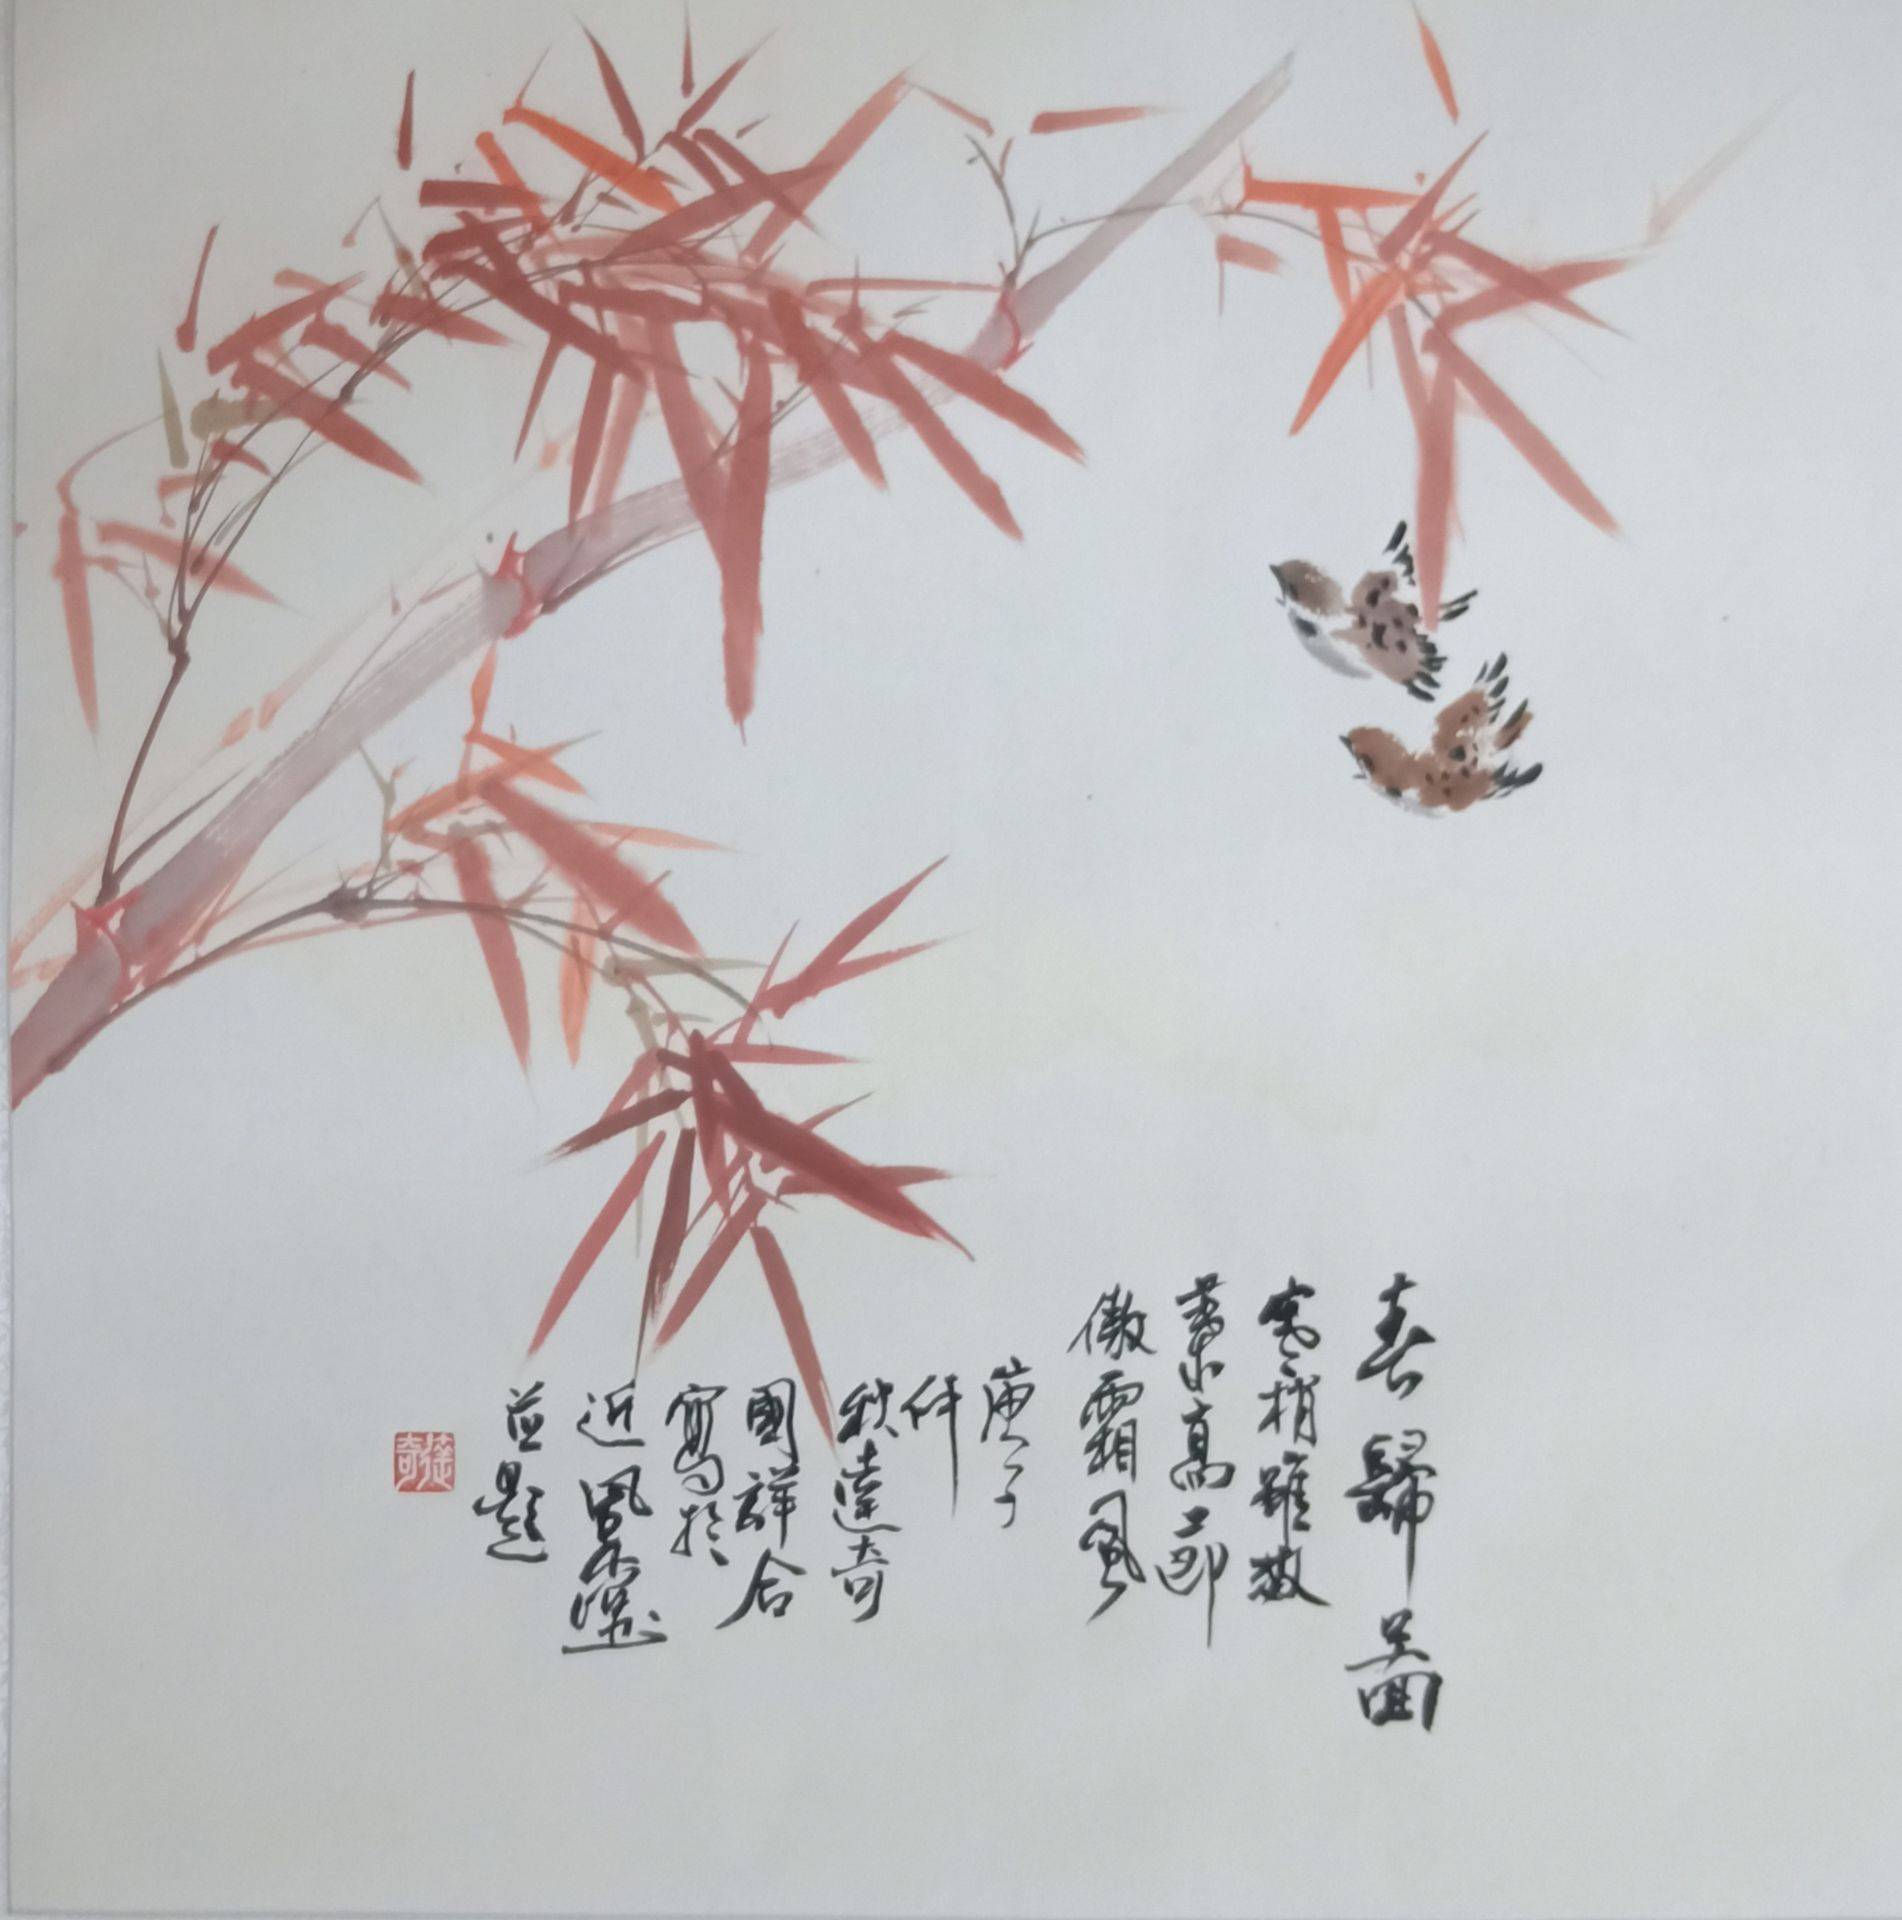 春歸圖
寒梢雖數
葉高節
傲霜風
庚子
仲
秋達奇
國祥合
寫於
近風
並題
達奇